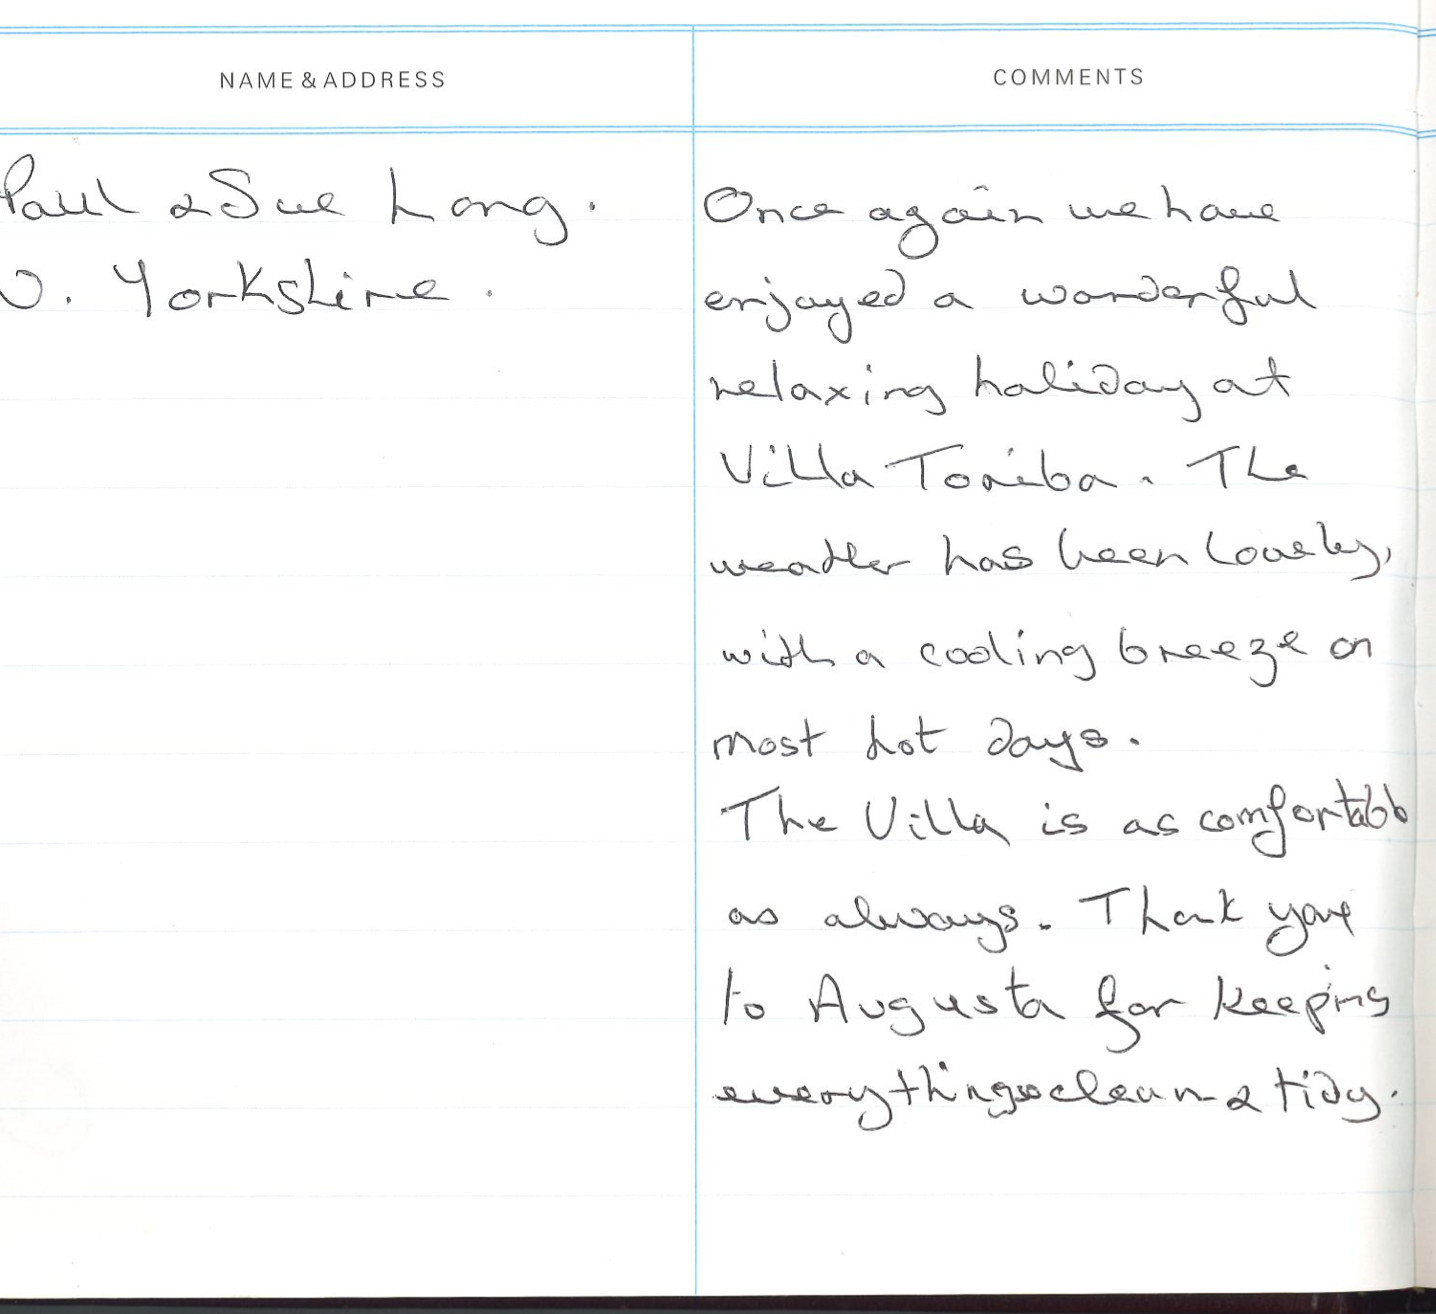 NAME & ADDRESS
COMMENTS
Paul & Sue Long.
Yorkshire.
Once again we have
enjoyed a wonderful
relaxing holiday at
Villa Toriba. The
weather has been lovely,
with a cooling breeze on
most hot days.
The Villa is as comfortable
as always. Thank you
to Augusta for keeping
everything so clean & tidy.